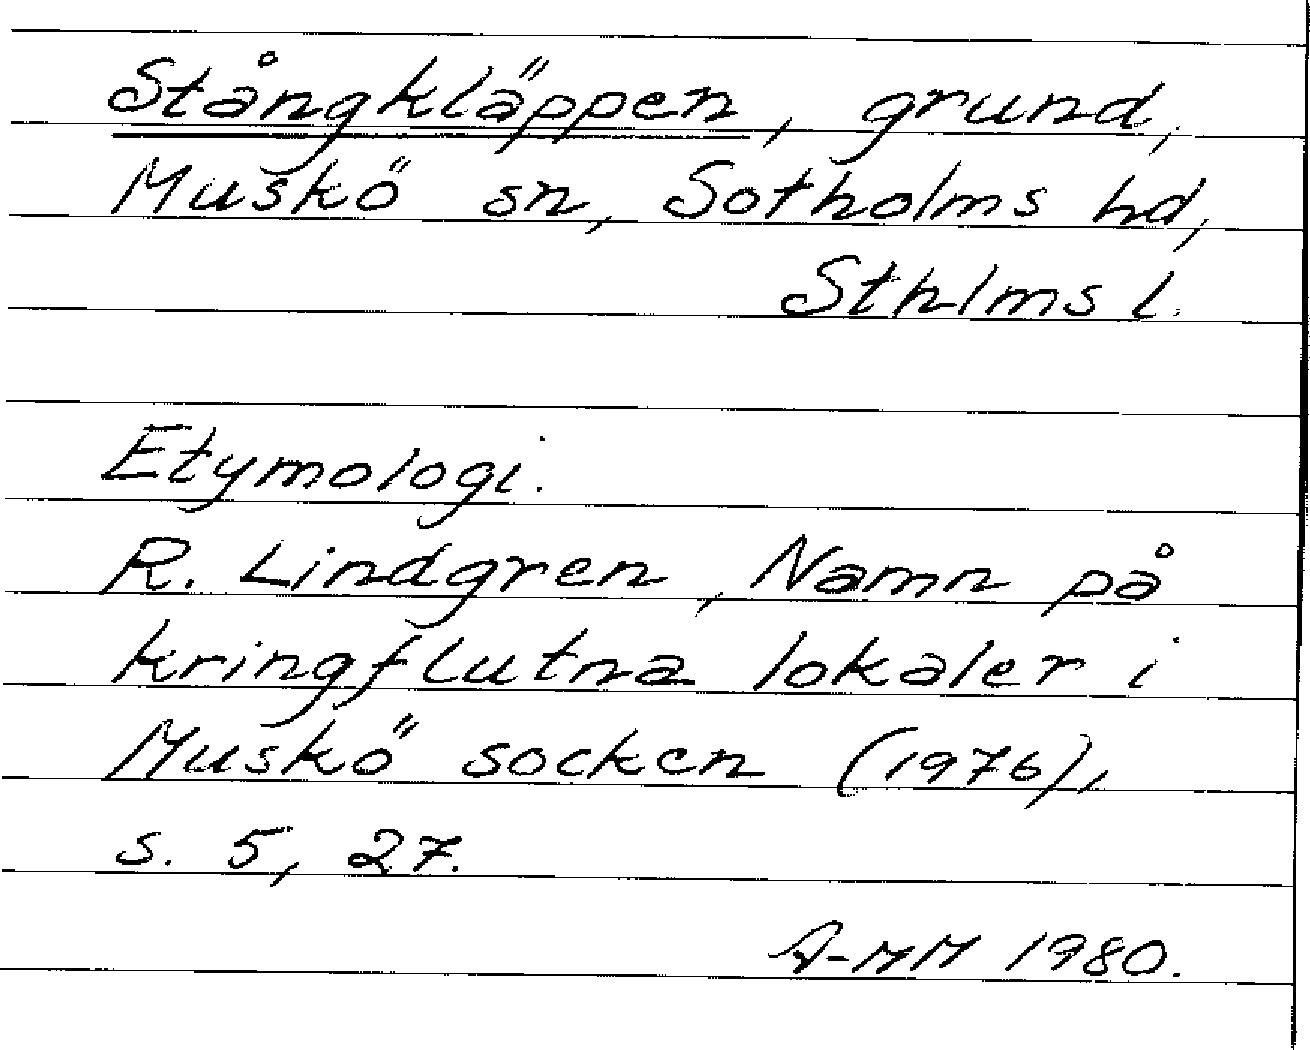 Stångkläppen, grund,
Muskö sn, Sotholms hd,
Sthlms l.
Etymologi.
R. Lindgren, Namn på
kringflutna lokaler i
Muskö socken (1976),
s. 5, 27.
A-MM 1980.